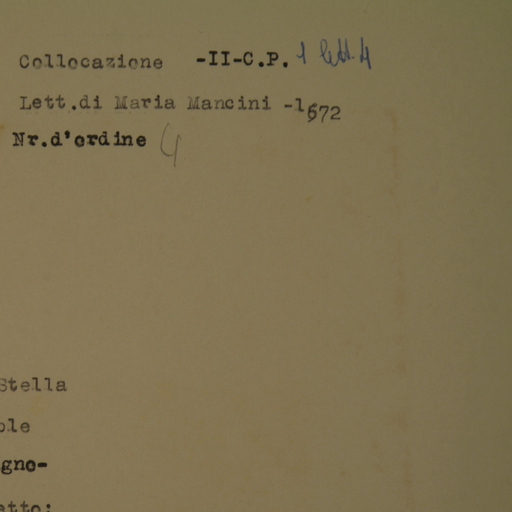 Collocazione -II-C.P. 1 lett. 4
Lett.di Maria Mancini -1672
Nr.d'ordine 4
Stella
ole
gno-
etto: